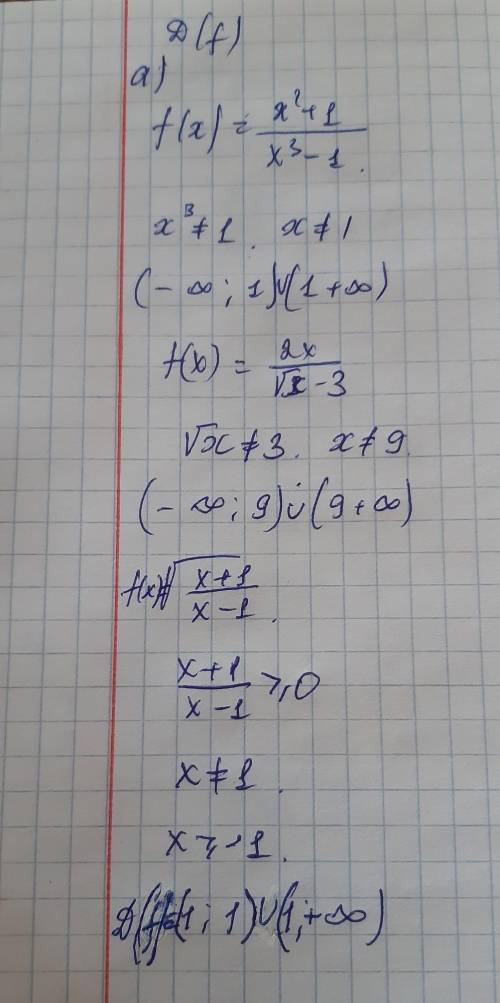 D(f)
a)
f(x) = \frac{x²+1}{x³-1}.
x³≠1. x≠1
(-∞; 1)∪(1+∞)
f(x) = \frac{2x}{√x-3}
√x≠3. x≠9.
(-∞; 9)∪(9+∞)
f(x)=√\frac{x+1}{x-1}.
\frac{x+1}{x-1}≥0
x≠1.
x≥-1.
D(f)=(1; 1)∪(1;+∞)